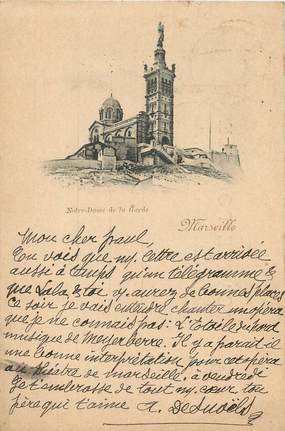 Notre-Dame de la Garde
Marseille
Mon cher Paul,
Tu vois que ma lettre est arrivée
aussi à temps qu'un télégramme &
que Lala & toi aurez de bonnes places
ce soir je vais entendre chanter un opéra
que je ne connais pas: L'Etoile du nord
musique de Meyerberre. Il y a parait il
une bonne interprétation pour cet opéra
au théatre de marseille. à vendredi
je t'embrasse de tout mon cœur ton
père qui t'aime A.